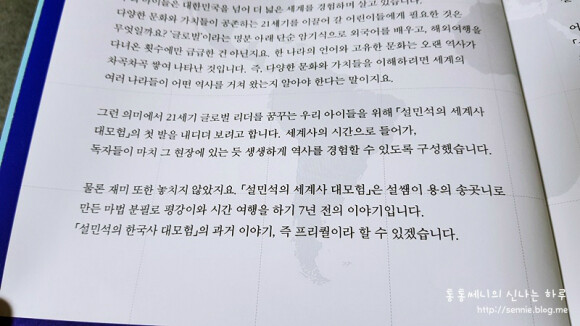 아이들은 대한민국을 넘어 더 넓은 세계를 경험하며 살고 있습니다.
다양한 문화와 가치들이 공존하는 21세기를 이끌어 갈 어린이들에게 필요한 것은
무엇일까요? '글로벌'이라는 명분 아래 단순 암기식으로 외국어를 배우고, 해외여행을
다녀온 횟수에만 급급한 건 아닌지요. 한 나라의 언어와 고유한 문화는 오랜 역사가
차곡차곡 쌓여 나타난 것입니다. 즉, 다양한 문화와 가치들을 이해하려면 세계의
여러 나라들이 어떤 역사를 거쳐 왔는지 알아야 한다는 말이지요.
그런 의미에서 21세기 글로벌 리더를 꿈꾸는 우리 아이들을 위해 「설민석의 세계사
대모험」의 첫 발을 내디뎌 보려고 합니다. 세계사의 시간으로 들어가,
독자들이 마치 그 현장에 있는 듯 생생하게 역사를 경험할 수 있도록 구성했습니다.
물론 재미 또한 놓치지 않았지요. 「설민석의 세계사 대모험」은 설쌤이 용의 송곳니로
만든 마법 분필로 평강이와 시간 여행을 하기 7년 전의 이야기입니다.
「설민석의 한국사 대모험」의 과거 이야기, 즉 프리퀄이라 할 수 있겠습니다.
통통쎄니의 신나는 하루
http://sennie.blog.me